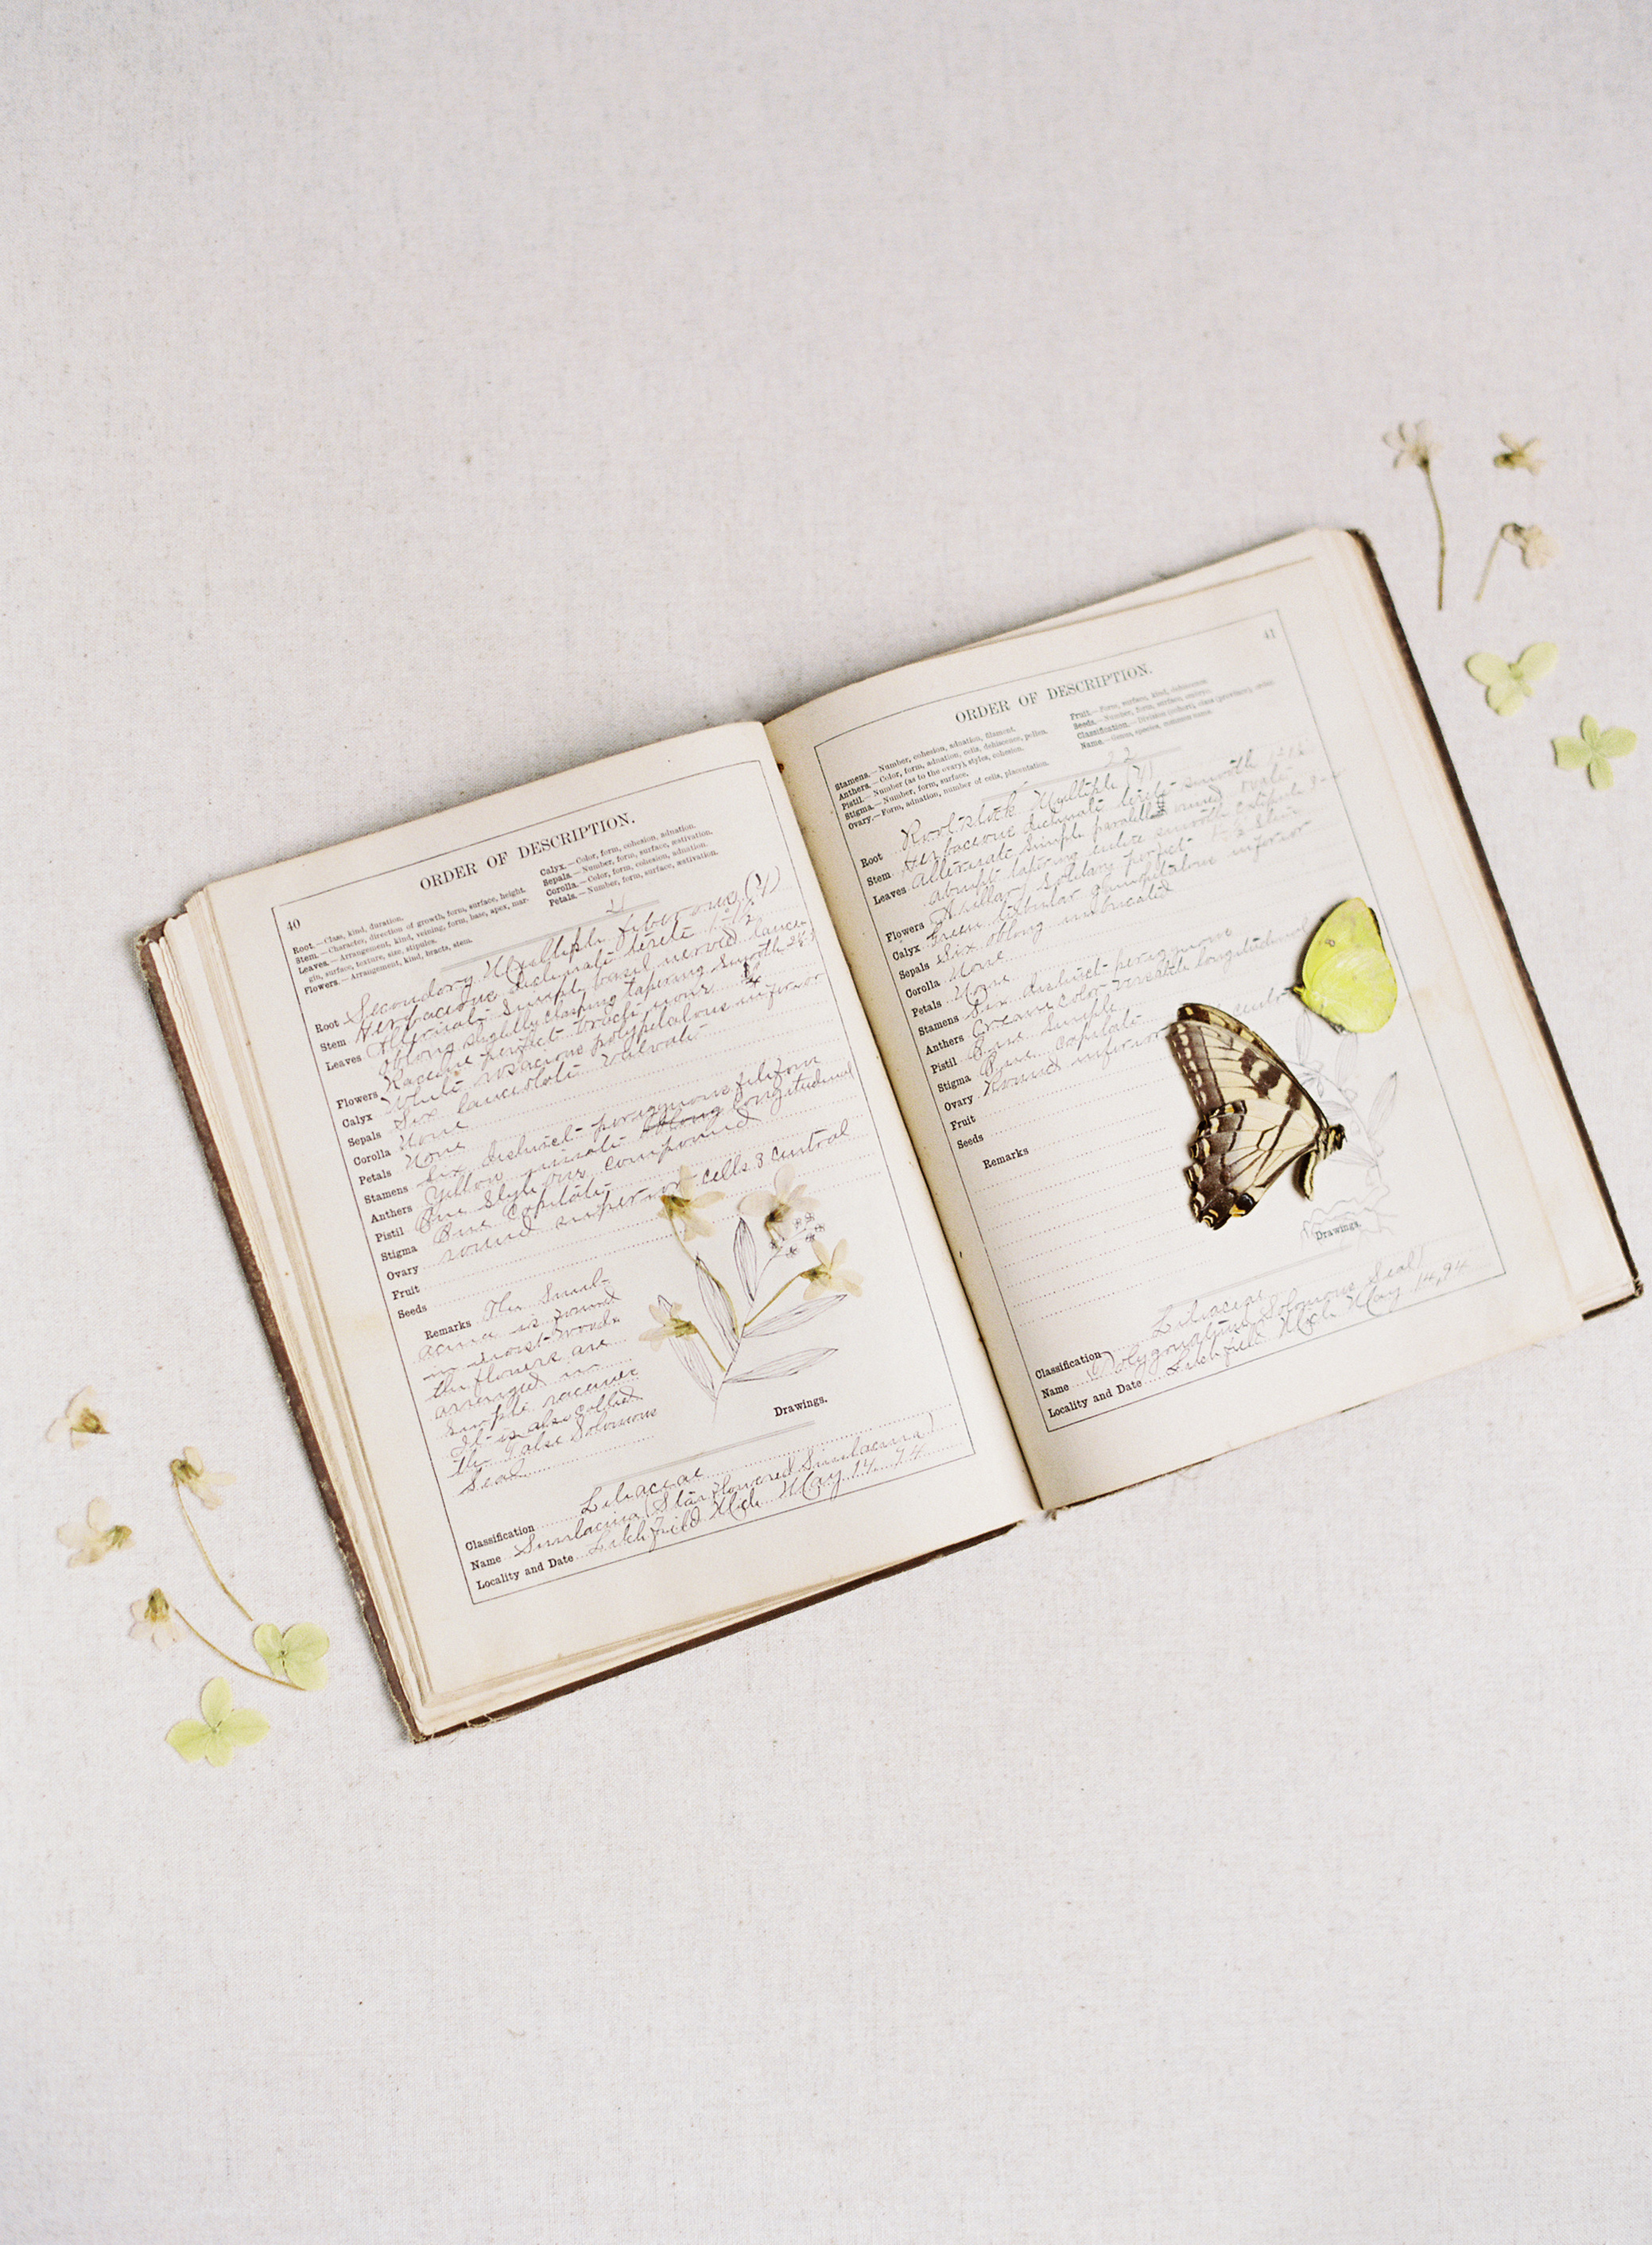 40
ORDER OF DESCRIPTION.
Root.—Class, kind, duration.
Stem.—Character, direction of growth, form, surface, height.
Leaves.—Arrangement, kind, veining, form, base, apex, mar-
gin, surface, texture, size, stipules.
Flowers.—Arrangement, kind, bracts, stem.
Calyx.—Color, form, cohesion, adnation.
Sepals.—Number, form, surface, æstivation.
Corolla.—Color, form, cohesion, adnation.
Petals.—Number, form, surface, æstivation.
Root Secondary Multiple fibrous
Stem Herbaceous
Leaves Alternate Simple nerved lance
oblong slightly clasping tapering smooth
Flowers Raceme perfect bracts none
Calyx White rosaceous polypetalous inferior
Sepals Six lanceolate valvate
Corolla None
Petals None
Stamens Six distinct perigynous filiform
Anthers Yellow innate oblong longitudinal
Pistil One Style compound
Stigma One Capitate
Ovary round superior cells 3 central
Fruit
Seeds
Remarks The Smil-
acina is found
in moist woods
the flowers are
arranged in
simple racemes
It is also called
the False Solomons
Seal
Drawings.
Classification Liliaceae
Name Smilacina (Star flowered Smilacina)
Locality and Date Litchfield Mich May 14 94
41
ORDER OF DESCRIPTION.
Stamens.—Number, cohesion, adnation, filament.
Anthers.—Color, form, adnation, cells, dehiscence, pollen.
Pistil.—Number (as to the ovary), styles, cohesion.
Stigma.—Number, form, surface.
Ovary.—Form, adnation, number of cells, placentation.
Fruit.—Form, surface, kind, dehiscence
Seeds.—Number, form, surface,
Classification.—Division (cohort), class (province), order.
Name.—Genus, species, common name.
22
Root Rootstock Multiple
Stem Herbaceous smooth
Leaves Alternate Simple parallel nerved
abrupt tapering entire smooth
Flowers Axillary Solitary perfect
Calyx Green tubular inferior
Sepals Six oblong imbricated
Corolla None
Petals None
Stamens Six distinct perigynous
Anthers Cream color versatile longitudinal
Pistil One Simple
Stigma One capitate
Ovary Round inferior
Fruit
Seeds
Remarks
Drawings.
Classification Liliaceae
Name Polygonatum (Solomons Seal)
Locality and Date Litchfield Mich May 14, 94